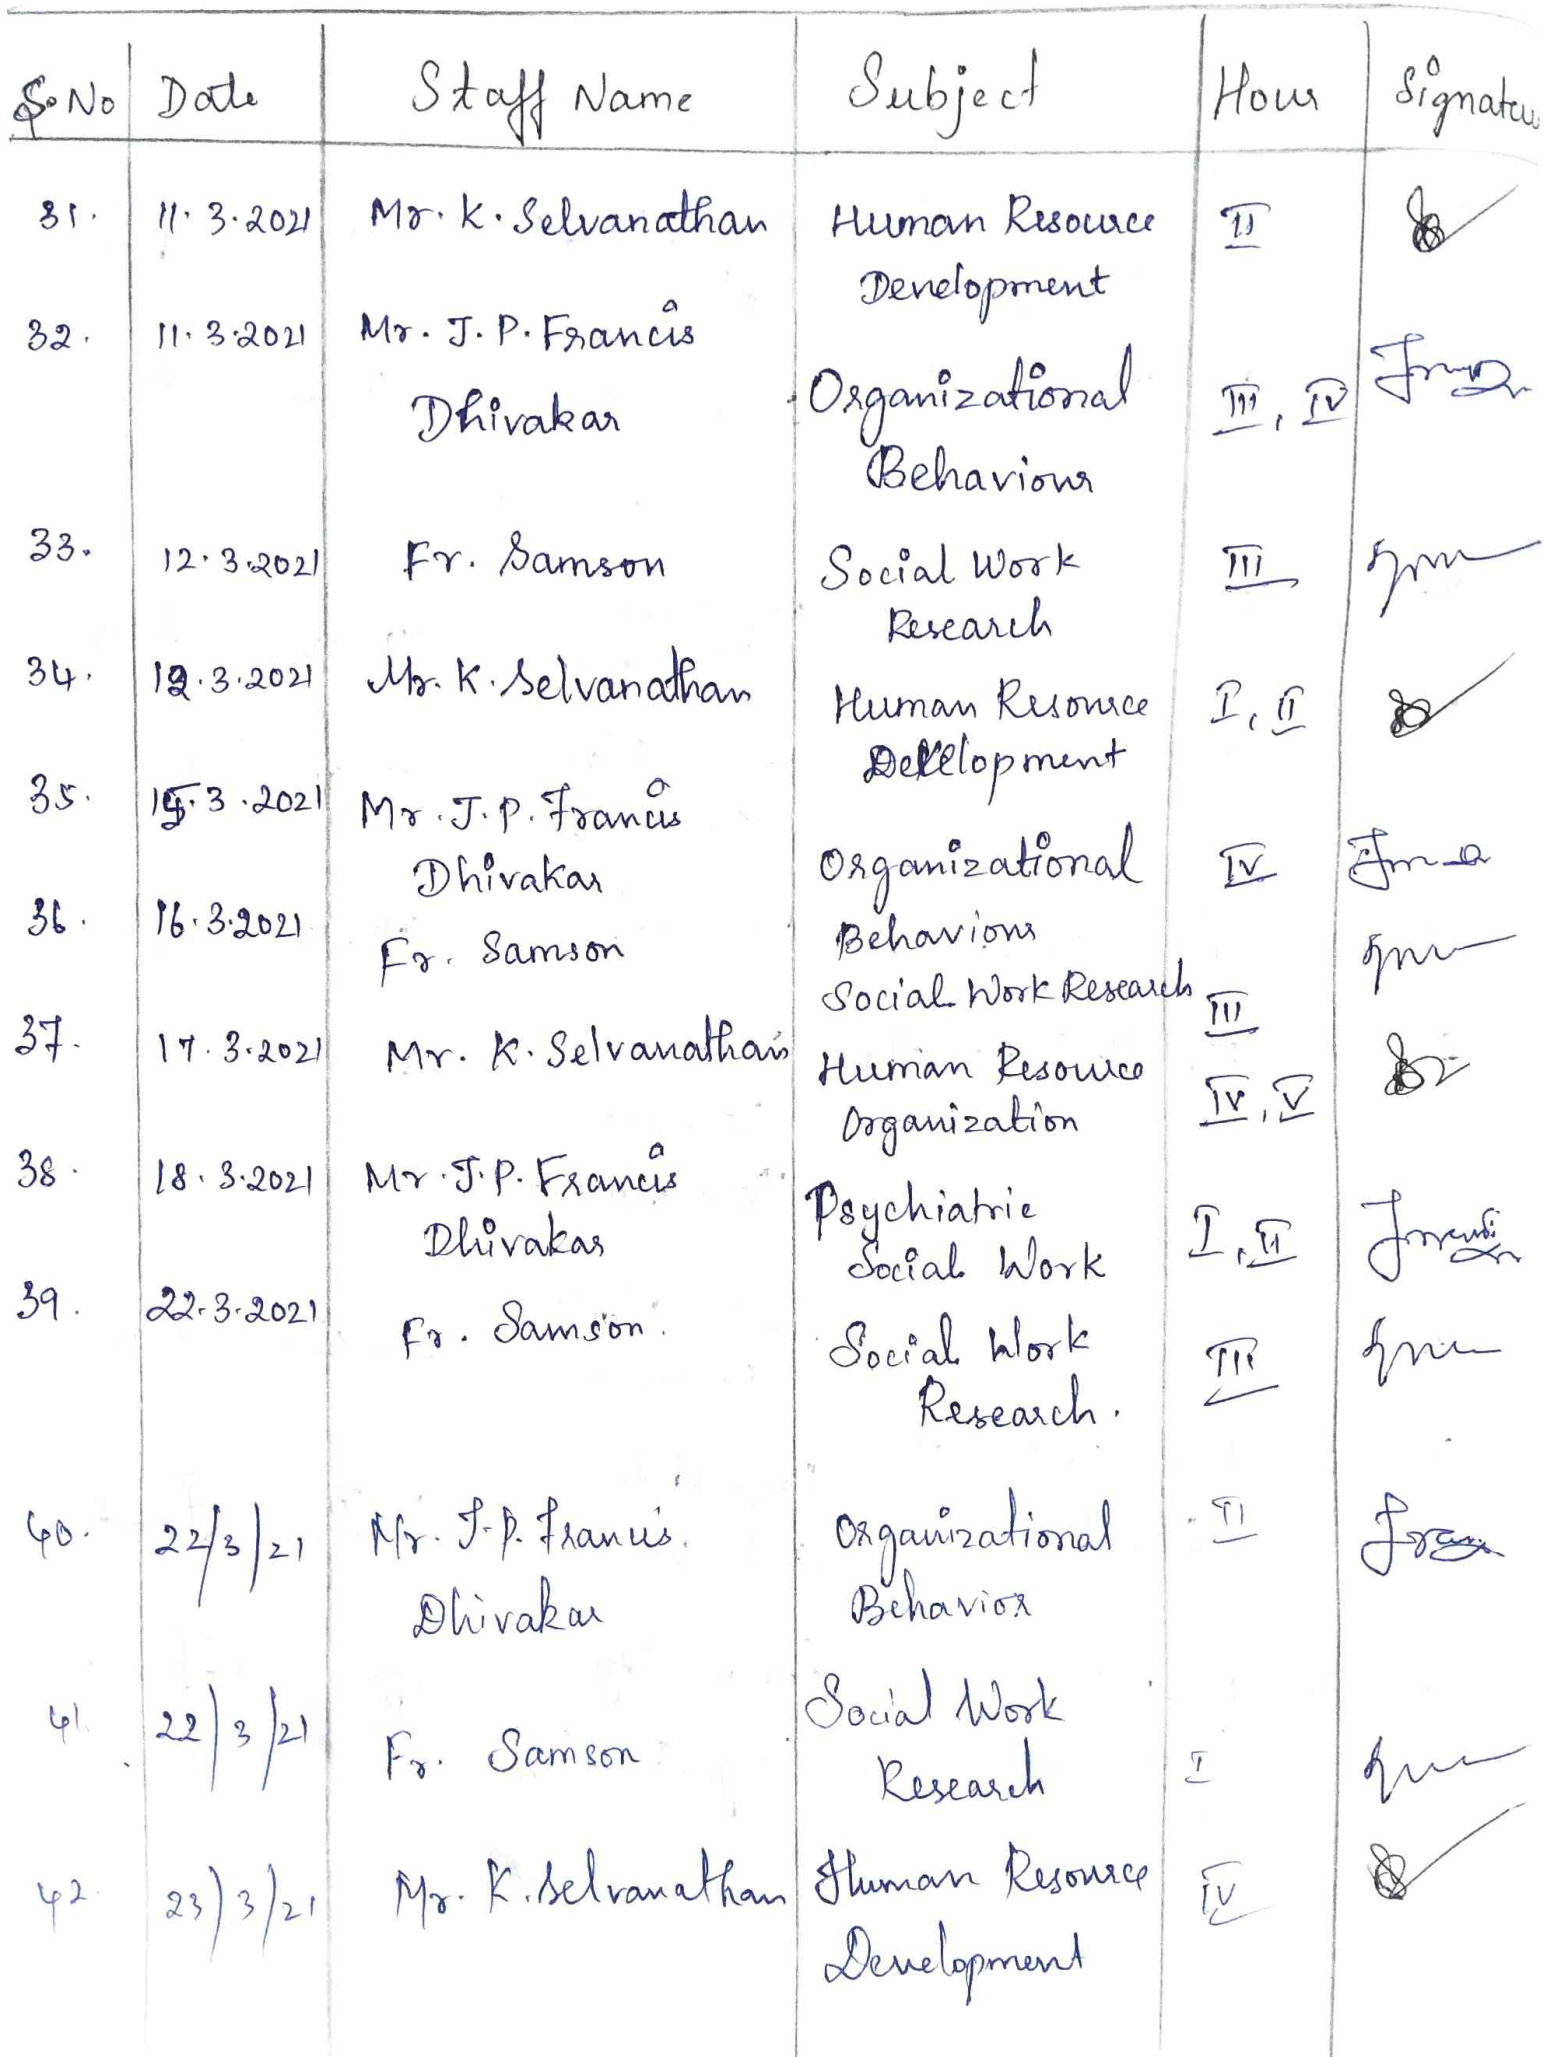 S.No Date Staff Name Subject Hour Signature
31. 11.3.2021 Mr. K. Selvanathan Human Resource II
Development
32. 11.3.2021 Mr. J.P. Francis
Dhivakar Organizational III, IV
Behaviour
33. 12.3.2021 Fr. Samson Social Work III
Research
34. 12.3.2021 Mr. K. Selvanathan Human Resource I, II
Development
35. 15.3.2021 Mr. J.P. Francis
Dhivakar Organizational IV
36. 16.3.2021 Fr. Samson Behaviour
Social Work Research III
37. 17.3.2021 Mr. K. Selvanathan Human Resource
Organization IV, V
38. 18.3.2021 Mr. J.P. Francis Psychiatric
Dhivakar Social Work I, II
39. 22.3.2021 Fr. Samson. Social Work III
Research.
40. 22/3/21 Mr. J.P. Francis. Organizational II
Dhivakar Behavior
41. 22/3/21 Fr. Samson Social Work
Research I
42. 23/3/21 Mr. K. Selvanathan Human Resource IV
Development